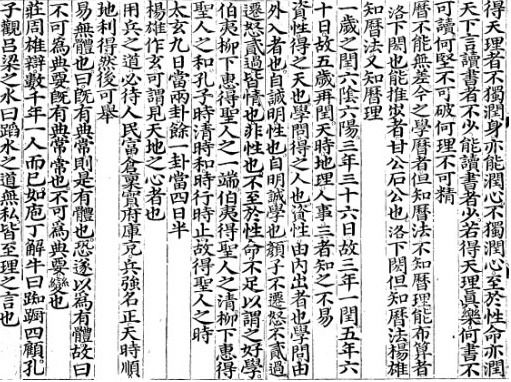 得天理者不獨潤身亦能潤心不獨潤心至於性命亦潤
天下言讀書者不少能讀書者少若得天理真樂何書不
可讀何堅不可破何理不可精
曆不能無差今之學曆者但知曆法不知曆理能布算者
洛下閎也能推步者甘公石公也洛下閎但知曆法楊雄
知曆法又知曆理
一歲之閏六陰六陽三年三十六日故三年一閏五年六
十日故五歲再閏天時地理人事三者知之不易
資性得之天也學問得之人也資性由內出者也學問由
外入者也自誠明性也自明誠學也顏子不遷怒不貳過
遷怒貳過皆情也非性也不至於性命不足以謂之好學
伯夷柳下惠得聖人之一端伯夷得聖人之清柳下惠得
聖人之和孔子時清時和時行時止故得聖人之時
太玄九日當兩卦餘一卦當四日半
楊雄作玄可謂見天地之心者也
用兵之道必待人民富倉廩實府庫充兵強名正天時順
地利得然後可舉
易無體也曰既有典常則是有體也恐遂以為有體故曰
不可為典要既有典常常也不可為典要變也
莊周雄辯數千年一人而已如庖丁解牛曰踟躕四顧孔
子觀呂梁之水曰蹈水之道無私皆至理之言也